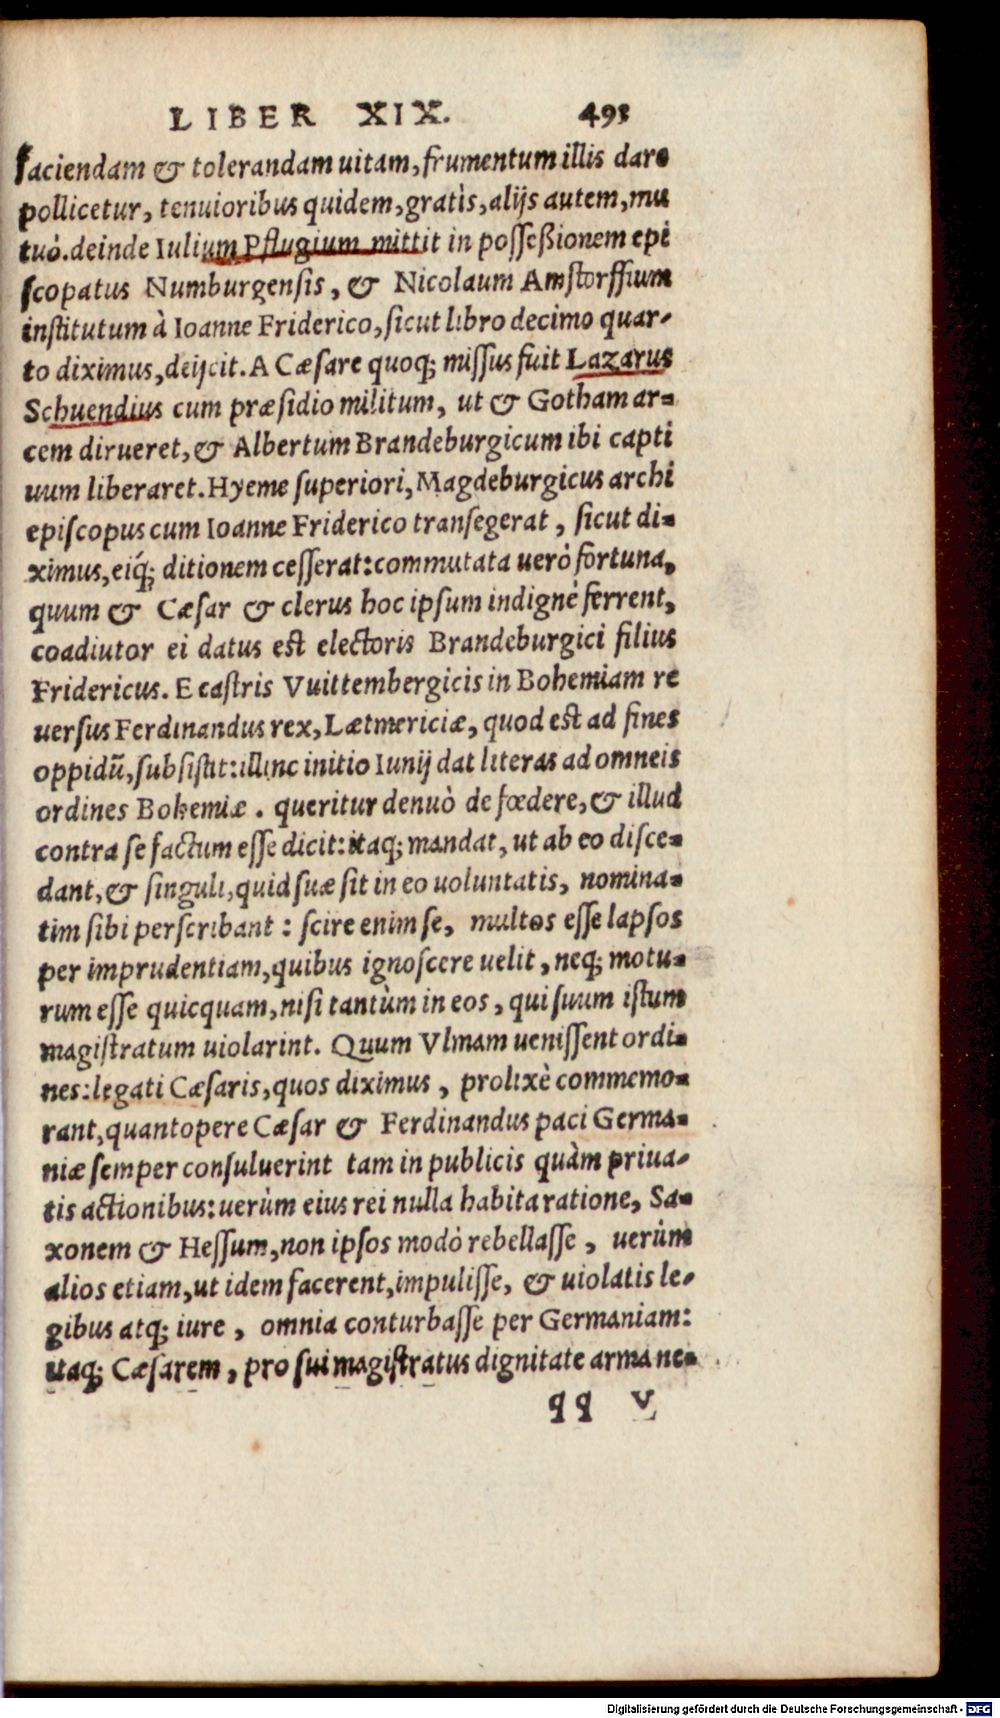 LIBER XIX. 493
faciendam & tolerandam uitam, frumentum illis dare
pollicetur, tenuioribus quidem, gratìs, alijs autem, mu
tuò. deinde Iulium Pflugium mittit in posseßionem epi
scopatus Numburgensis, & Nicolaum Amstorffium
institutum à Ioanne Friderico, sicut libro decimo quar-
to diximus, deijcit. A Cæsare quoq; missus fuit Lazarus
Schuendius cum præsidio militum, ut & Gotham ar-
cem dirueret, & Albertum Brandeburgicum ibi capti
uum liberaret. Hyeme superiori, Magdeburgicus archi
episcopus cum Ioanne Friderico transegerat, sicut di-
ximus, eiq́; ditionem cesserat: commutata uerò fortuna,
quum & Cæsar & clerus hoc ipsum indignè ferrent,
coadiutor ei datus est electoris Brandeburgici filius
Fridericus. E castris Vuittembergicis in Bohemiam re
uersus Ferdinandus rex, Lætmericiæ, quod est ad fines
oppidũ, subsistit: illinc initio Iunij dat literas ad omneis
ordines Bohemiæ. queritur denuò de fœdere, & illud
contra se factum esse dicit: itaq; mandat, ut ab eo disce-
dant, & singuli, quid suæ sit in eo uoluntatis, nomina-
tim sibi perscribant: scire enim se, multos esse lapsos
per imprudentiam, quibus ignoscere uelit, neq; motu-
rum esse quicquam, nisi tantùm in eos, qui suum istum
magistratum uiolarint. Quum Vlmam uenissent ordi-
nes: legati Cæsaris, quos diximus, prolixè commemo-
rant, quantopere Cæsar & Ferdinandus paci Germa-
niæ semper consuluerint tam in publicis quàm priua-
tis actionibus: uerùm eius rei nulla habita ratione, Sa-
xonem & Hessum, non ipsos modò rebellasse, uerùm
alios etiam, ut idem facerent, impulisse, & uiolatis le-
gibus atq; iure, omnia conturbasse per Germaniam:
itaq; Cæsarem, pro sui magistratus dignitate arma ne-
qq v
Digitalisierung gefördert durch die Deutsche Forschungsgemeinschaft - DFG